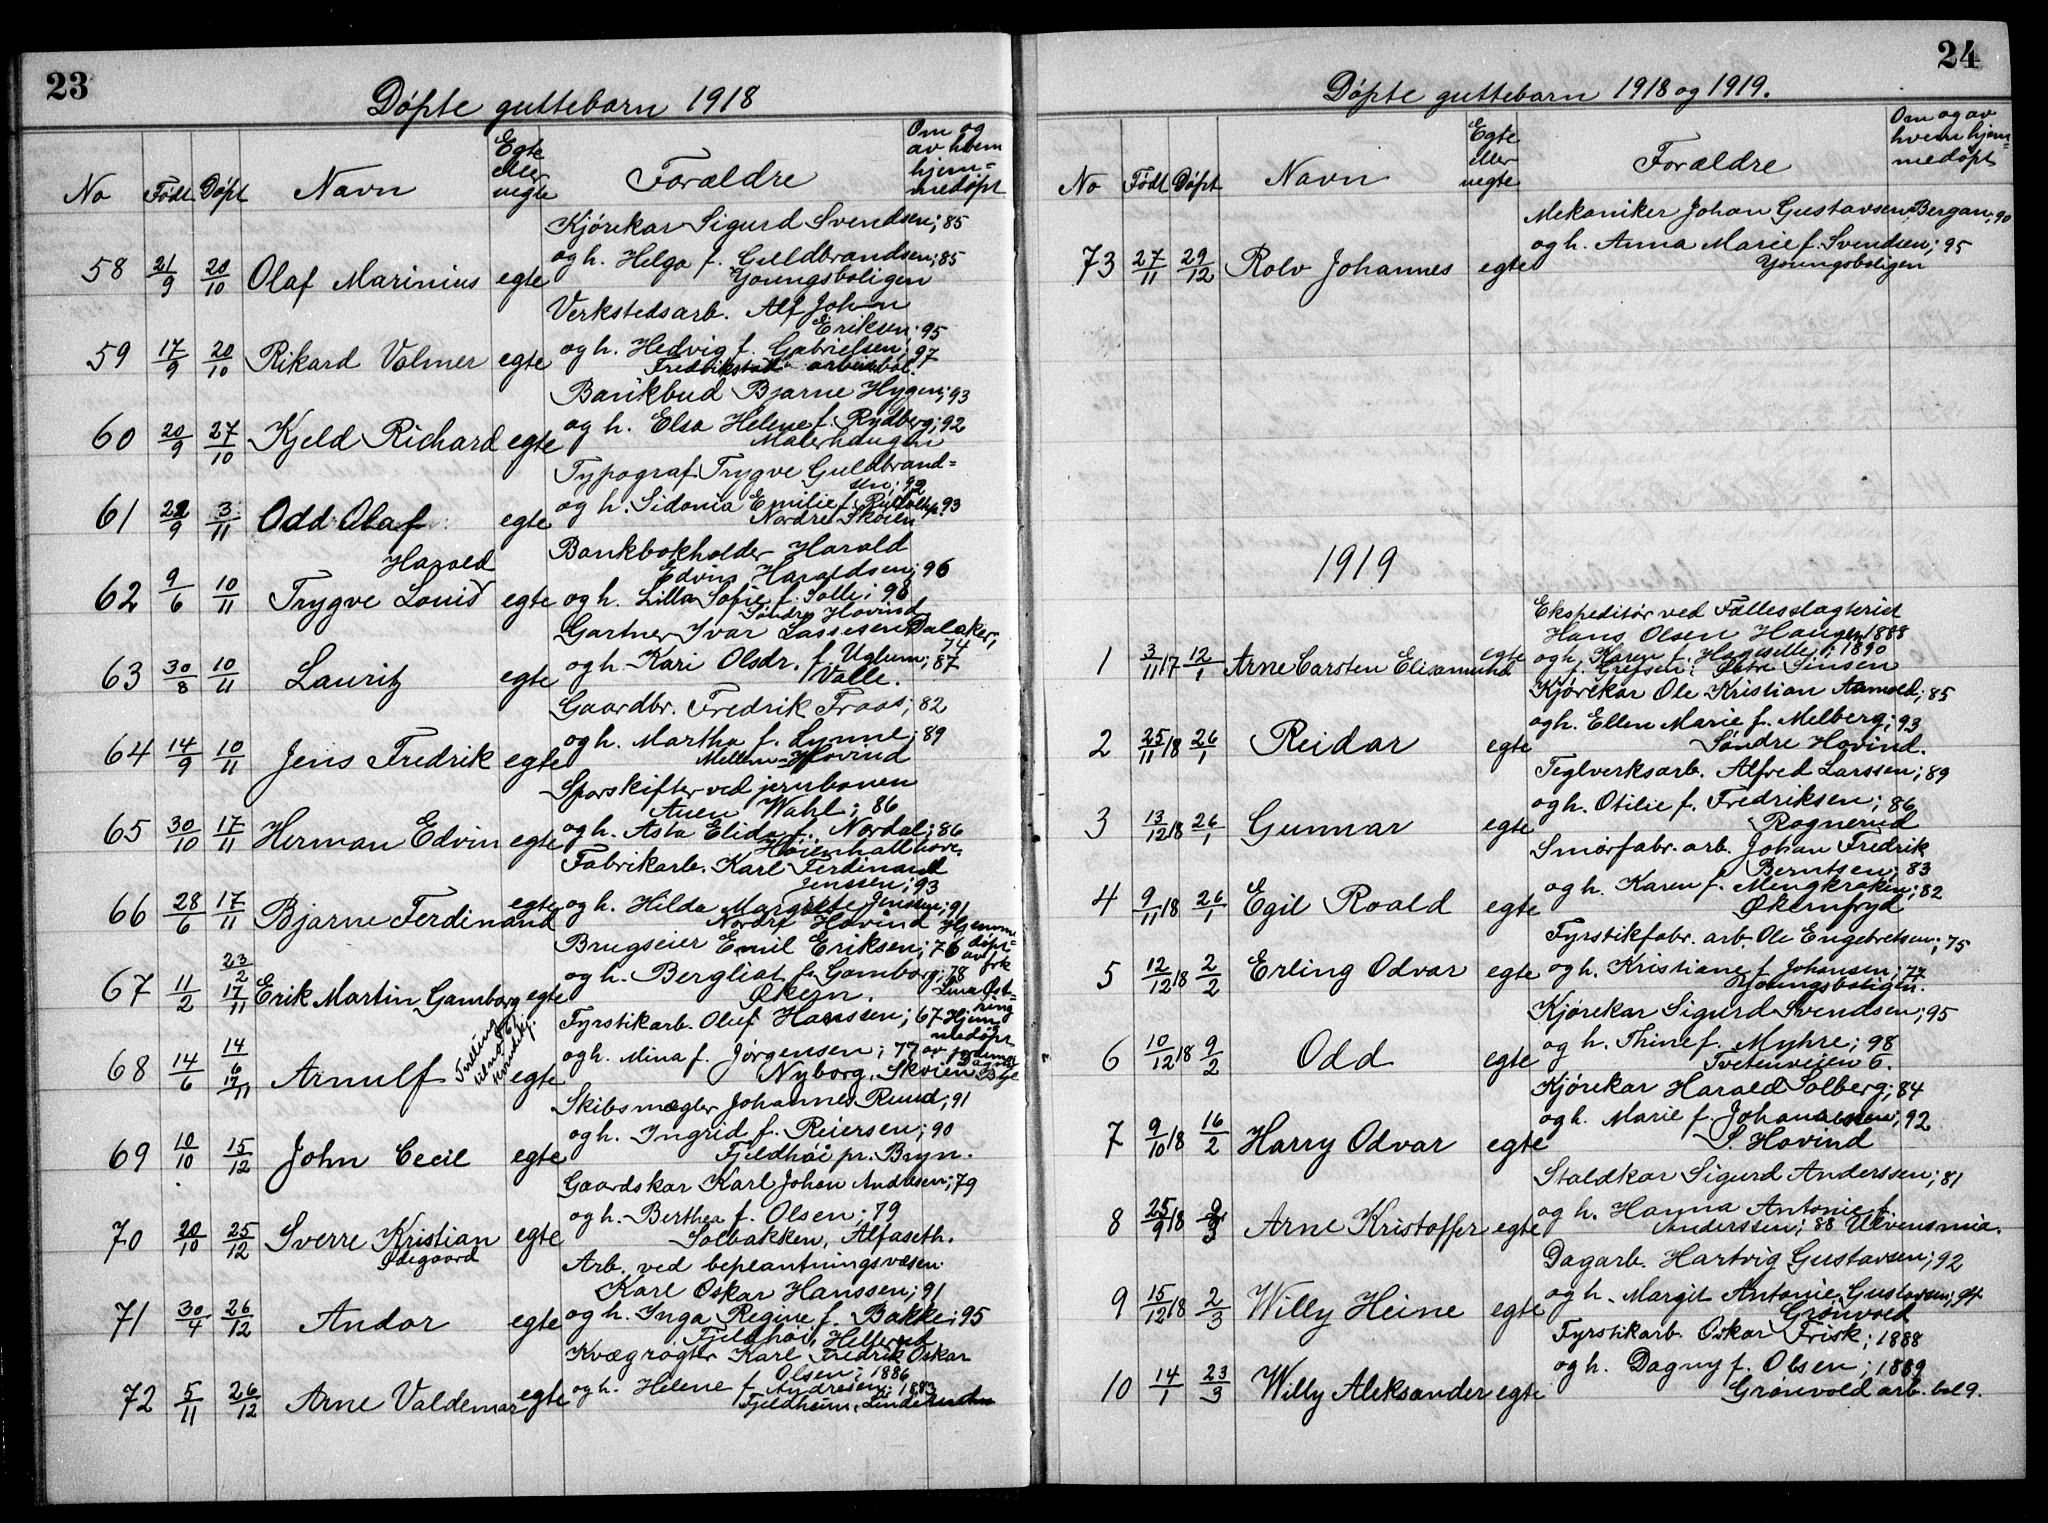 23
Døpte guttebarn 1918
No Født Døpt Navn Egte eller uegte Forældre Om og av hvem hjemmedøpt
Kjørekar Sigurd Svendsen; 85
58 21/9 20/10 Olaf Marinius egte og h. Helga f. Guldbrandsen; 85
Youngsboligen
Verkstedsarb. Alf Johan
Eriksen; 95
59 17/9 20/10 Rikard Volmer egte og h. Hedvig f. Gabrielsen; 97
Fredrikstad arbeiderbol.
Bankbud Bjarne Hygen; 93
60 20/9 27/10 Kjeld Richard egte og h. Elsa Helene f. Rydberg; 92
Malerhaugen
Typograf Trygve Guldbrand=
sen; 92
61 22/9 3/11 Odd Olaf egte og h. Sidonia Emilie f. 93
Nordre Skøien
Bankbokholder Harald
Edvin Haraldsen; 96
62 9/6 10/11 Trygve Louis Harald egte og h. Lilla Sofie f. Solli; 98
Søndre Hovind
Gartner Ivar Lassesen Dalaker;
74
63 30/8 10/11 Lauritz egte og h. Kari Olsdr. f. Uglum; 87
Valle.
Gaardbr. Fredrik Traas; 82
64 14/9 10/11 Jens Fredrik egte og h. Martha f. Lynne; 89
Mellem-Hovind
Sporskifter ved jernbanen
Auen Wahl; 86
65 30/10 17/11 Herman Edvin egte og h. Asta Elida f. Nordal; 86
Høienhallhave.
Fabrikarb. Karl Ferdinand
Jenssen; 93
66 28/6 17/11 Bjarne Ferdinand egte og h. Hilda Margrete Jenssen; 91
Nordre Hovind
Brugseier Emil Eriksen; 76
67 11/2 23/2 17/11 Erik Martin Gamborg egte og h. Bergliot f. Gamborg; 78
Økern.
Hjemmedøpt av frk Lina Østring
Fyrstikarb. Oluf Hanssen; 67
68 14/6 14/6 17/11 Arnulf Tvilling egte og h. Mina f. Jørgensen; 77
Nyborg, Skøien
Hjemmedøpt av jordemor
Skibsmægler Johannes Ruud; 91
69 10/10 15/12 John Cecil egte og h. Ingrid f. Reiersen; 90
Fjeldhøi pr. Bryn.
Gaardskar Karl Johan Andresen; 79
70 20/10 25/12 Sverre Kristian Ødegaard egte og h. Berthea f. Olsen; 79
Solbakken, Alfaseth.
Arb. ved beplantningsvæsen
Karl Oskar Hanssen; 91
71 30/4 26/12 Andor egte og h. Inga Regine f. Bakke; 95
Fjeldhøi, Hellerud
Kvægrøgter Karl Fredrik Oskar
Olsen; 1886
72 5/11 26/12 Arne Valdemar egte og h. Helene f. Andresen; 1883
Fjeldheim, Linderudsn
24
Døpte guttebarn 1918 og 1919.
No Født Døpt Navn Egte eller uegte Forældre Om og av hvem hjemmedøpt
Mekaniker Johan Gustavsen Bergan; 90
73 27/11 29/12 Rolv Johannes egte og h. Anna Marie f. Svendsen; 95
Youngsboligen
1919
Ekspeditør ved Fællesslagteriet
Hans Olsen Haugen 1888
1 3/11 17 12/1 Arne Carsten Elisamund egte og h. Karen f. 1890
f. Grefsen; Østre Sinsen
Kjørekar Ole Kristian Aamold; 85
2 25/11 18 26/1 Reidar egte og h. Ellen Marie f. Melberg; 93
Søndre Hovind.
Teglverksarb. Alfred Larssen; 89
3 13/12 18 26/1 Gunnar egte og h. Otilie f. Fredriksen; 86
Rognerud
Smørfabr. arb. Johan Fredrik
Berntsen; 83
4 9/11 18 26/1 Egil Roald egte og h. Karen f. Mengkroken; 82
Økernfryd
Fyrstikfabr. arb. Ole Engebretsen; 75
5 12/12 18 2/2 Erling Odvar egte og h. Kristiane f. Johansen; 77
Youngsboligen.
Kjørekar Sigurd Svendsen; 95
6 10/12 18 9/2 Odd egte og h. Thine f. Myhre; 98
Tvetenveien 6.
Kjørekar Harald Solberg; 84
7 9/10 18 16/2 Harry Odvar egte og h. Marie f. Johannessen; 92
S. Hovind
Staldkar Sigurd Anderssen; 81
8 25/9 18 2/3 Arne Kristoffer egte og h. Hanna Antonie f.
Anderssen; 88 Ulvensmia.
Dagarb. Hartvig Gustavsen; 92
9 15/12 18 2/3 Willy Heine egte og h. Margit Antonie Gustavsen; 97
Grønvold
Fyrstikarb. Oskar Frisk; 1888
10 14/1 23/3 Willy Aleksander egte og h. Dagny f. Olsen; 1889
Grønvold arb. bol 9.